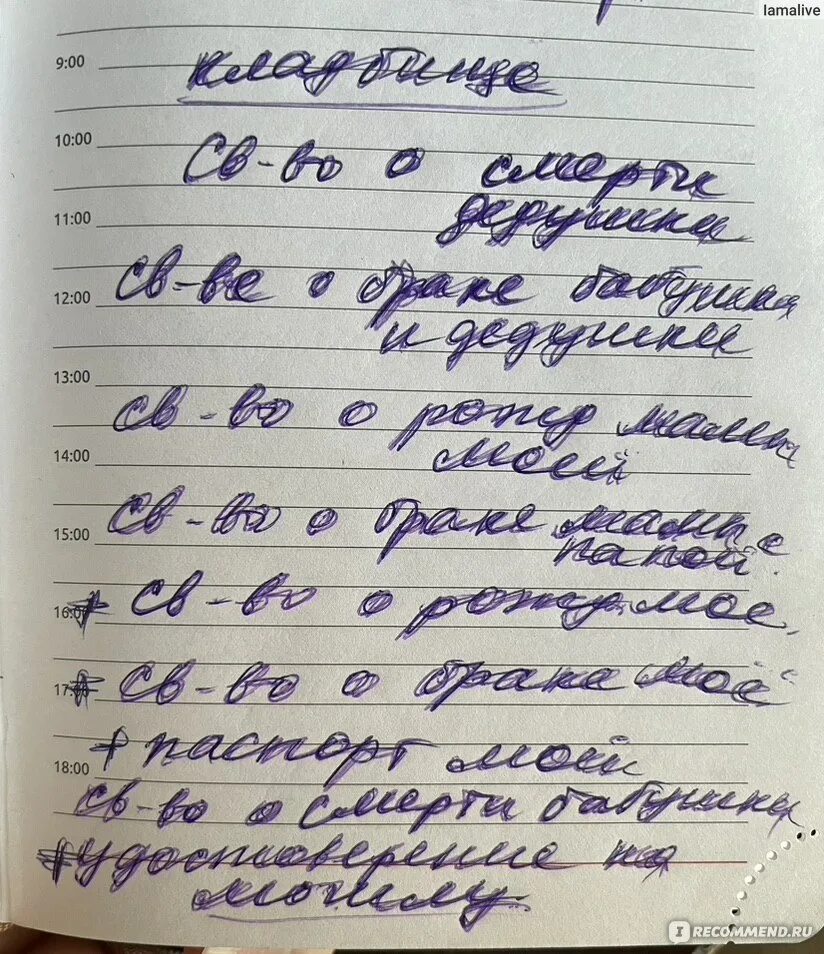 Iamalive
9:00
кладбище
10:00
Св-во о смерти
дедушки
11:00
Св-ве о браке бабушки
12:00
и дедушки
13:00
св-во о рожд мамы
моей
14:00
Св-во о браке мамы с
15:00
папой
+ Св-во о рожд. мое
16:00
+ Св-во о браке моё
17:00
+ паспорт мой
18:00
св-во о смерти бабушки
+ удостоверение на
могилу
IRECOMMEND.RU